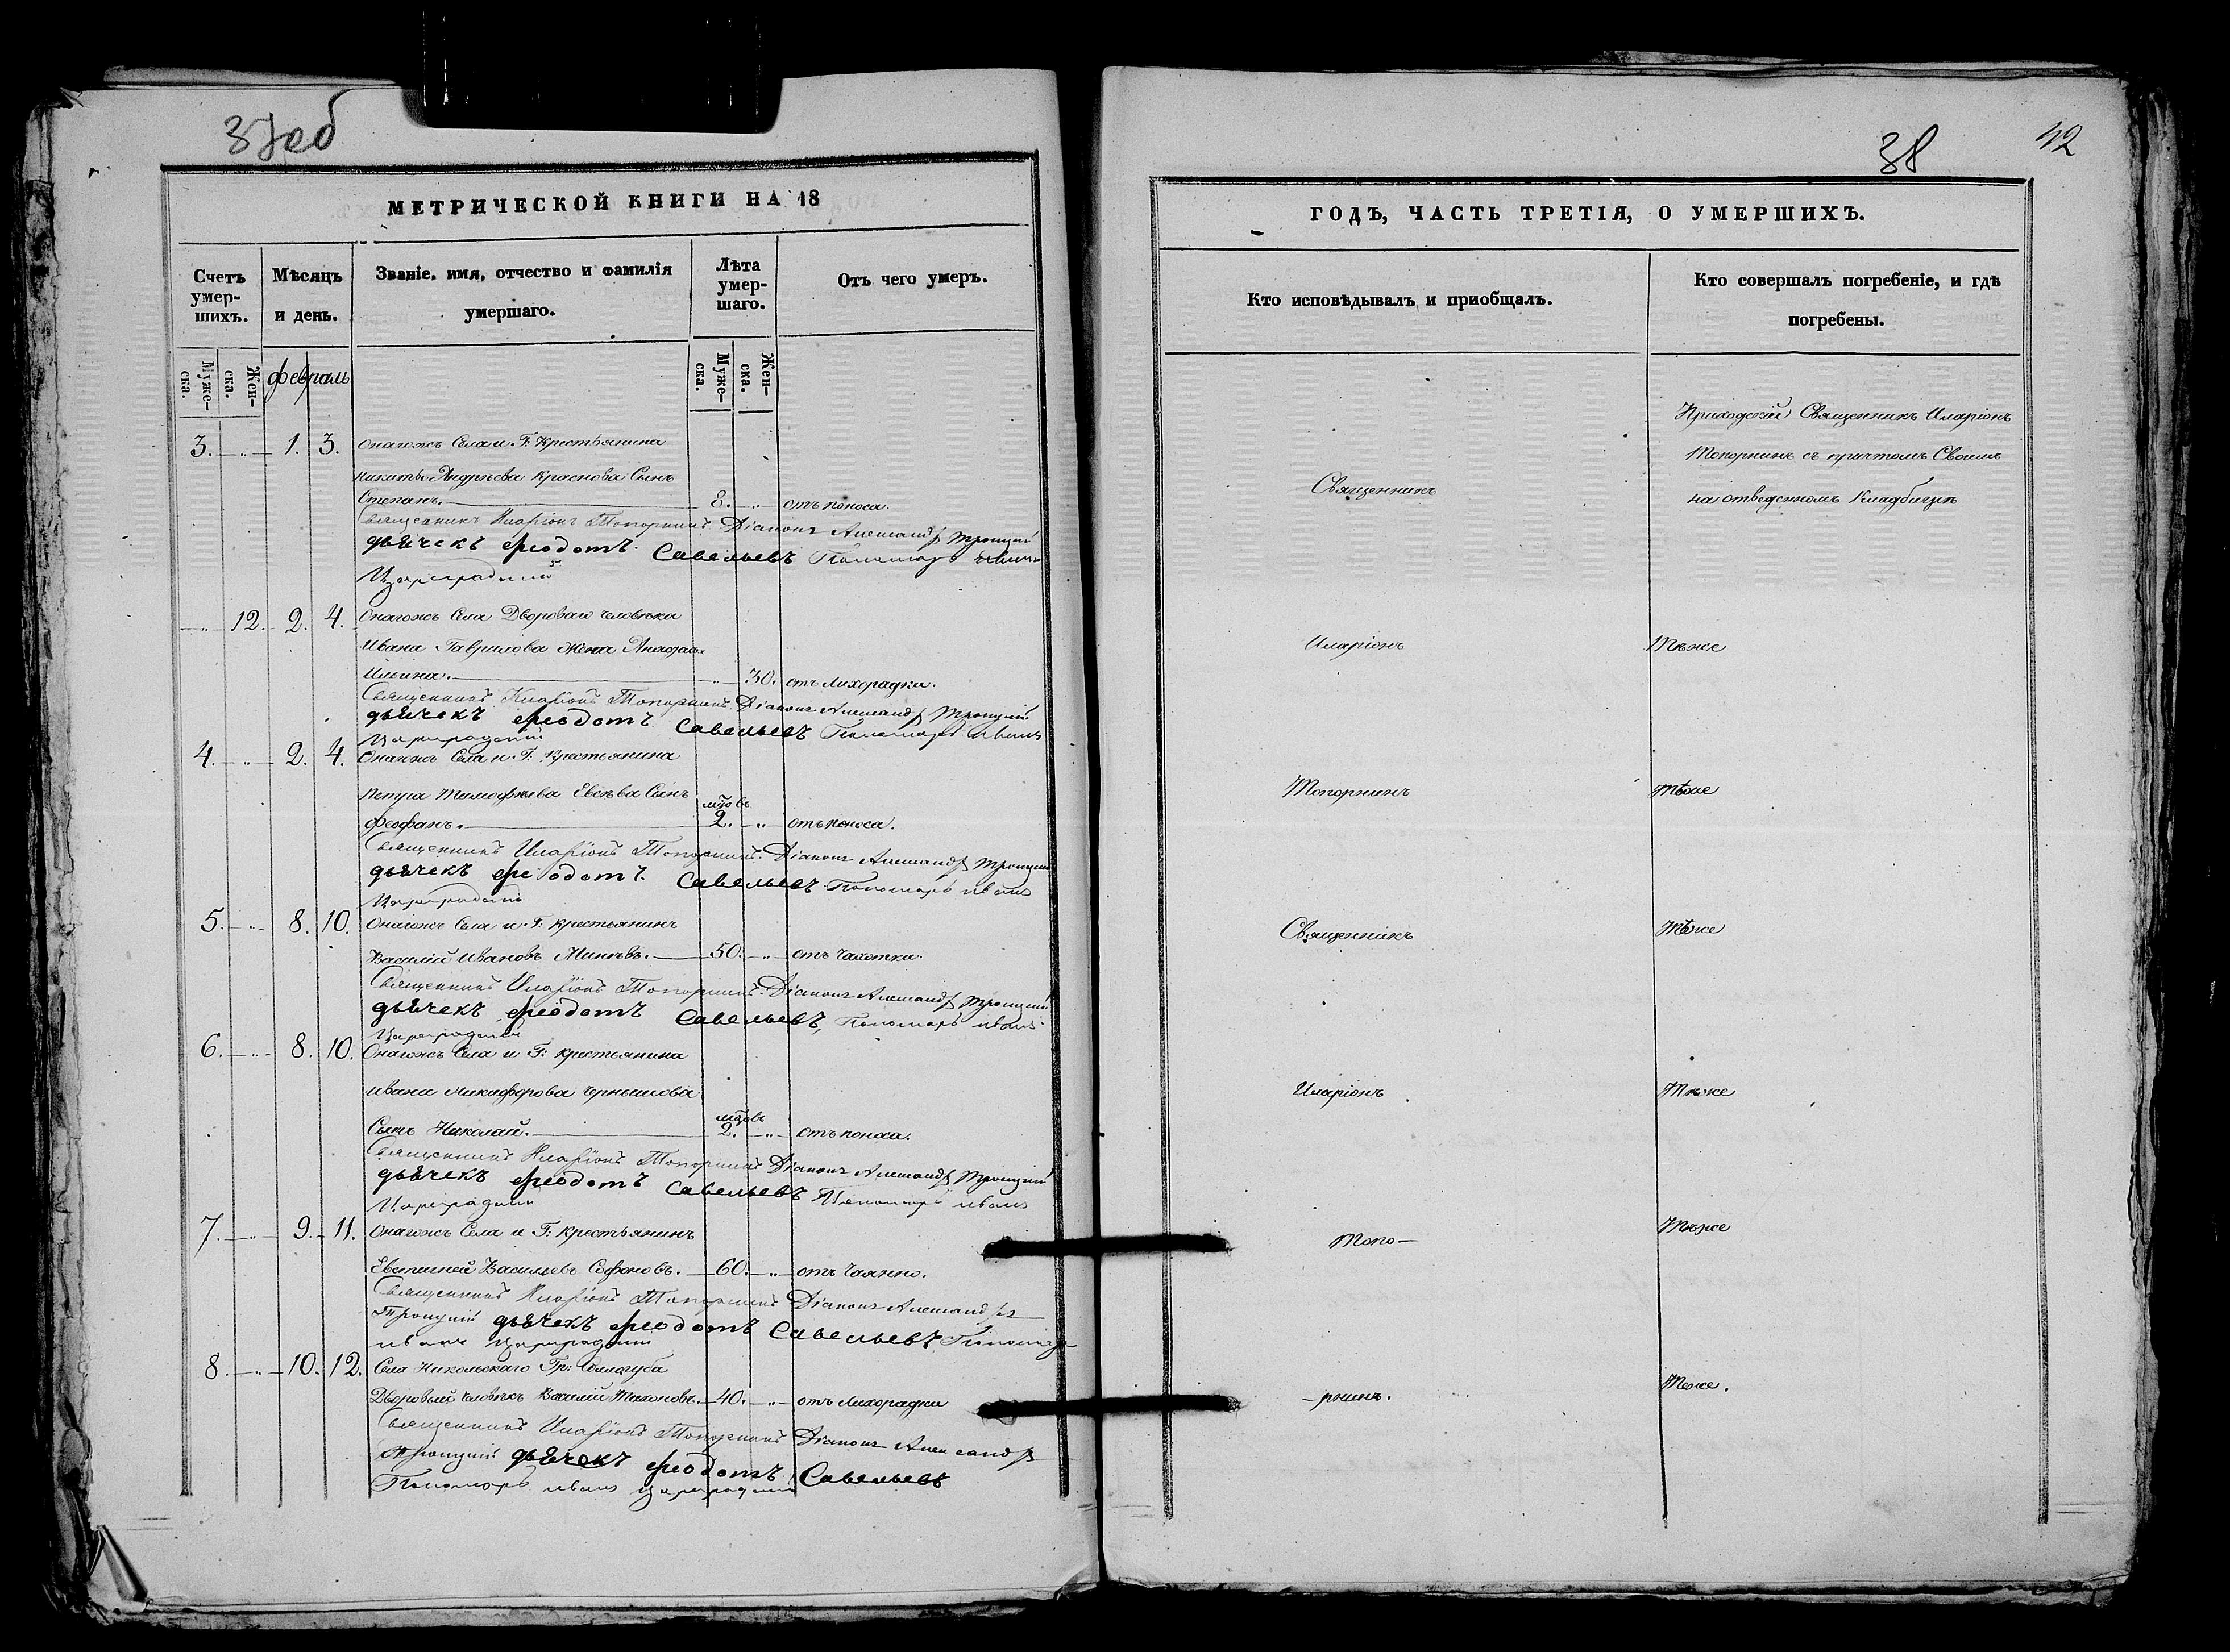 37об
МЕТРИЧЕСКОЙ КНИГИ НА 18
Счетъ умер-шихъ.
Мѣсяцъ и день.
Званіе, имя, отчество и фамилія умершаго.
Лѣта умер-шаго.
Отъ чего умеръ.
Муже-ска.
Жен-ска.
февраль
Муже-ска.
Жен-ска.
3. „ 1. 3. Онагожъ Села и Г: Крестьянина
Никиты Андрѣева Краснова Сынъ
Степанъ. 8. „ отъ поноса.
Священникъ Иларіонъ Топорнинъ Діаконъ Александръ Троицкій
дьячекъ Феодотъ Савельевъ Пономарь Иванъ
Цареградскій
„ 12. 2. 4. Онагожъ Села Двороваго человѣка
Ивана Гаврилова жена
„ 30. отъ лихорадки.
Священникъ Иларіонъ Топорнинъ Діаконъ Александръ Троицкій
дьячекъ Феодотъ Савельевъ Пономарь Иванъ
Цареградскій
4. „ 2. 4. Онагожъ Села и Г: Крестьянина
Петра Тимофѣева Евсѣва Сынъ
Феофанъ. 2. „ отъ поноса.
Священникъ Иларіонъ Топорнинъ Діаконъ Александръ Троицкій
дьячекъ Феодотъ Савельевъ Пономарь Иванъ
Цареградскій
5. „ 8. 10. Онагожъ Села и Г: крестьянинъ
Василій Ивановъ 50. „ отъ чахотки.
Священникъ Иларіонъ Топорнинъ Діаконъ Александръ Троицкій
дьячекъ Феодотъ Савельевъ, Пономарь Иванъ
Цареградскій
6. „ 8. 10. Онагожъ Села и Г: крестьянина
Ивана Никифорова Чернышова
Сынъ Николай. 2. „ отъ поноса.
Священникъ Иларіонъ Топорнинъ Діаконъ Александръ Троицкій
дьячекъ Феодотъ Савельевъ Пономарь Иванъ
Цареградскій
7. „ 9. 11. Онагожъ Села и Г: крестьянинъ
Евстигней Васильевъ Софоновъ. 60. „
Священникъ Иларіонъ Топорнинъ Діаконъ Александръ
Троицкій дьячекъ Феодотъ Савельевъ Пономарь
Иванъ Цареградскій
8. „ 10. 12. Села Никольскаго Гр: Соллогуба
Дворовый человѣкъ Василій 40. „ отъ лихорадки
Священникъ Иларіонъ Топорнинъ Діаконъ Александръ
Троицкій дьячекъ Феодотъ Савельевъ
Пономарь Иванъ Цареградскій
38 42
ГОДЪ, ЧАСТЬ ТРЕТІЯ, О УМЕРШИХЪ.
Кто исповѣдывалъ и приобщалъ.
Кто совершалъ погребеніе, и гдѣ погребены.
Приходскій Священникъ Иларіонъ
Топорнинъ съ причтомъ Своимъ
Священникъ на отведенномъ Кладбищѣ
Иларіонъ Тѣже
Топорнинъ Тѣже
Священникъ Тѣже
Иларіонъ Тѣже
Топо— Тѣже
—рнинъ. Тѣже.